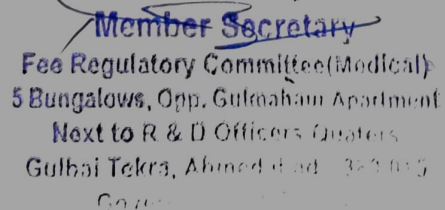 Member Secretary
Fee Regulatory Committee(Medical)
5 Bungalows, Opp. Gulmaham Apartment
Next to R & D Officers Quaters
Gulbai Tekra,